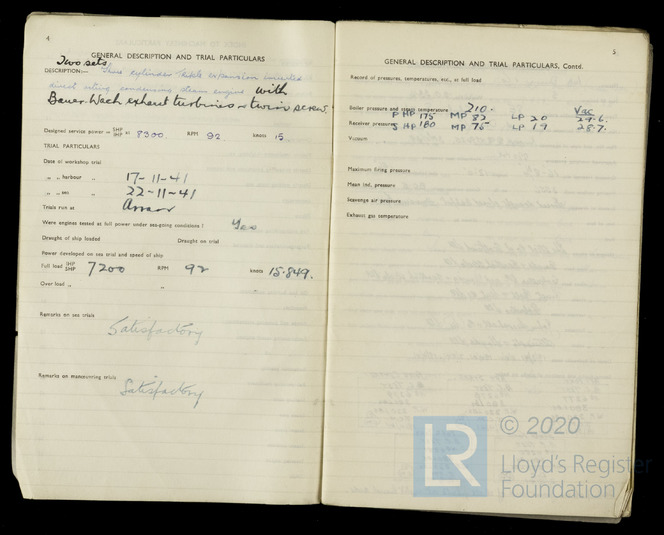 4
GENERAL DESCRIPTION AND TRIAL PARTICULARS
Two sets
DESCRIPTION:— Three cylinder triple expansion inverted
direct acting condensing steam engine with
Bauer-Wach exhaust turbines twin screw.
Designed service power SHP IHP 8300 RPM 92. knots 15.
TRIAL PARTICULARS
Date of workshop trial
„ „ harbour „ 17-11-41
„ „ sea „ 22-11-41
Trials run at Arran
Were engines tested at full power under sea-going conditions? Yes
Draught of ship loaded Draught on trial
Power developed on sea trial and speed of ship
Full load IHP SHP 7200 RPM 92 knots 15.849.
Over load „ „ „
Remarks on sea trials
Satisfactory
Remarks on manœuvring trials
Satisfactory
5
GENERAL DESCRIPTION AND TRIAL PARTICULARS, Contd.
Record of pressures, temperatures, etc., at full load
Boiler pressure and steam temperature 210. Vac
Receiver pressures P HP 175 MP 82 LP 20 29.6.
S HP 180 MP 75 LP 19 28.7.
Vacuum
Maximum firing pressure
Mean ind. pressure
Scavenge air pressure
Exhaust gas temperature
LR © 2020
Lloyd's Register
Foundation